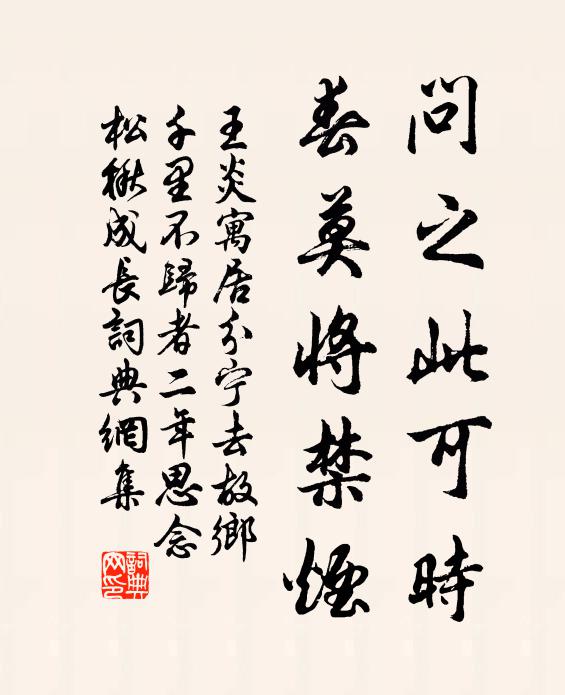 問之此可時
春莫將禁煙
王炎寓居分宁去故鄉
千里不歸者二年思念
松楸成長詞典網集
詞典
网印